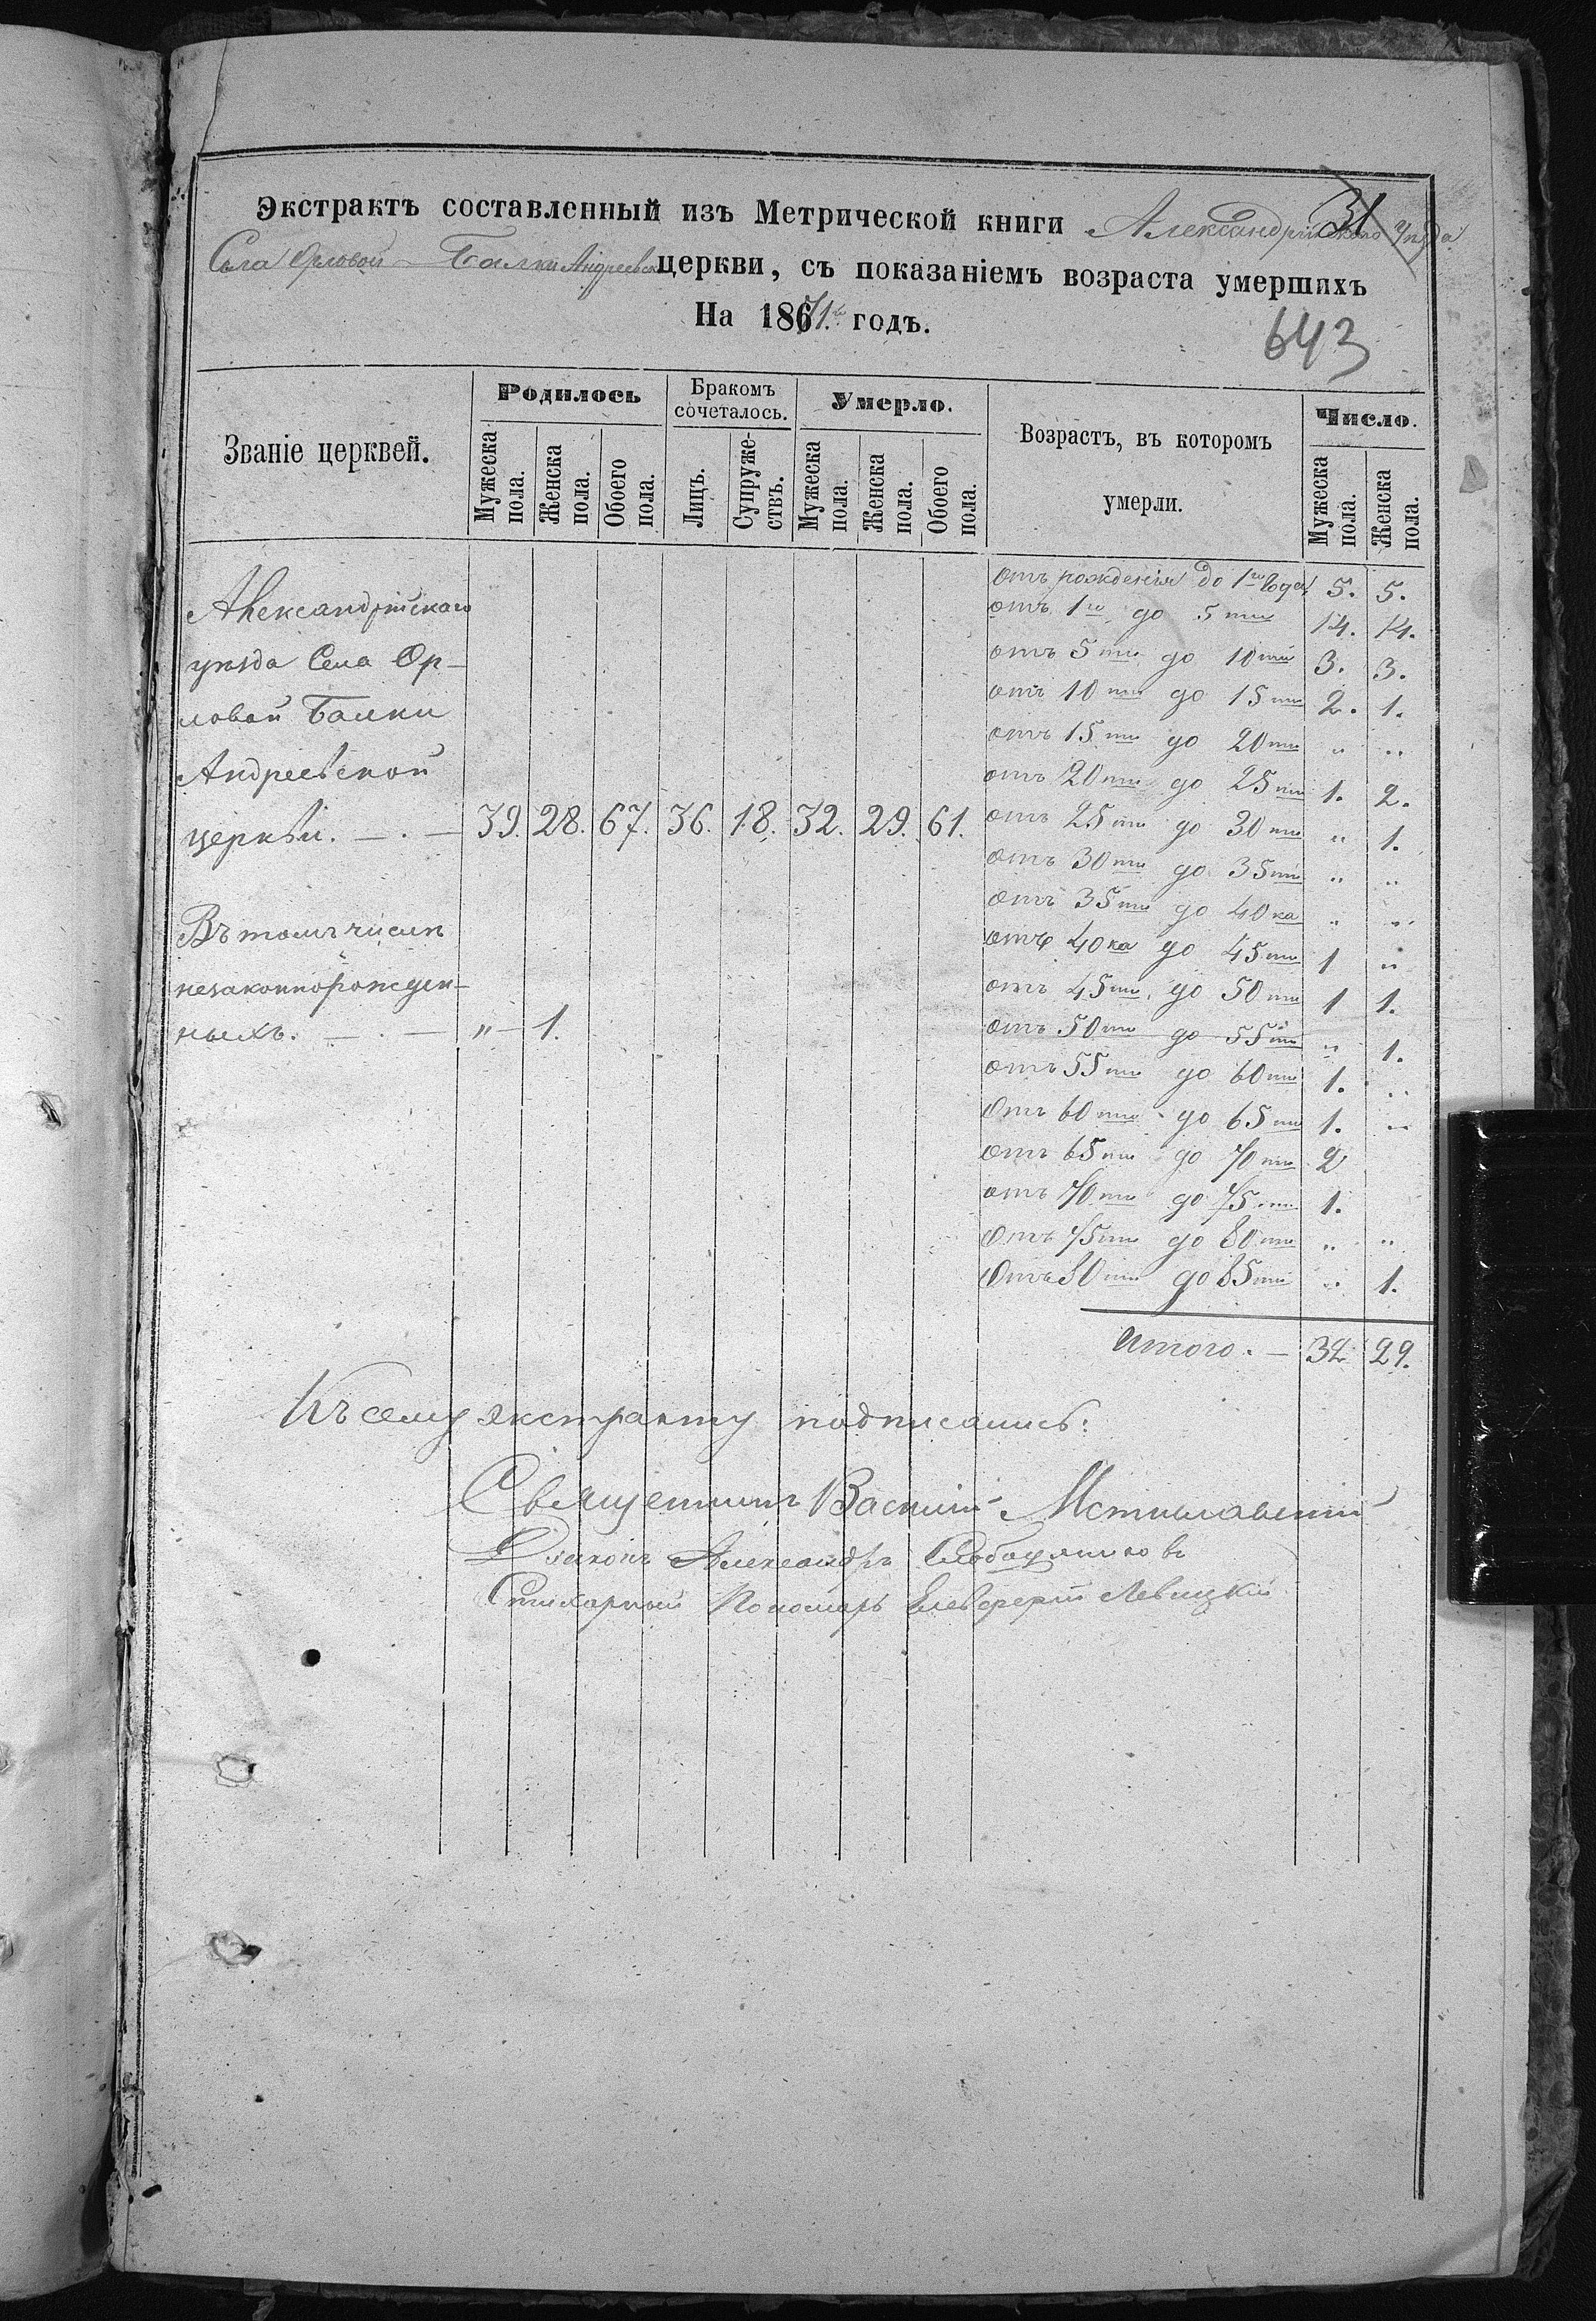 31
Экстрактъ составленный изъ Метрической книги Александрійскаго Уѣзда
Села Орловой Балки Андреевской церкви, съ показаніемъ возраста умершихъ
На 1871 годъ.
643
Званіе церквей. Родилось Бракомъ сочеталось. Умерло. Возрастъ, въ которомъ умерли. Число.
Мужеска пола. Женска пола. Обоего пола. Лицъ. Супружествъ. Мужеска пола. Женска пола. Обоего пола. Мужеска пола. Женска пола.
Александрійскаго
уѣзда Села Ор-
ловой Балки
Андреевской
церкви. — . — 39. 28. 67. 36. 18. 32. 29. 61.
Въ томъ числѣ
незаконнорожден-
ныхъ. — . — „ — 1.
отъ рожденія до 1го года 5. 5.
отъ 1го до 5ти 14. 14.
отъ 5ти до 10ти 3. 3.
отъ 10ти до 15ти 2. 1.
отъ 15ти до 20ти „ „
отъ 20ти до 25ти 1. 2.
отъ 25ти до 30ти „ 1.
отъ 30ти до 35ти „ „
отъ 35ти до 40ка „ „
отъ 40ка до 45ти 1 „
отъ 45ти до 50ти 1 1.
отъ 50ти до 55ти „ 1.
отъ 55ти до 60ти 1. „
отъ 60ти до 65ти 1. „
отъ 65ти до 70ти 2
отъ 70ти до 75ти 1.
отъ 75ти до 80ти „ „
отъ 80ти до 85ти „ 1.
Итого. — 32 29.
Къ сему экстракту подписались:
Священникъ Василій Мстиславскій
Діаконъ Александръ Слободяниковъ
Стихарный Пономарь Елевферій Левицкій